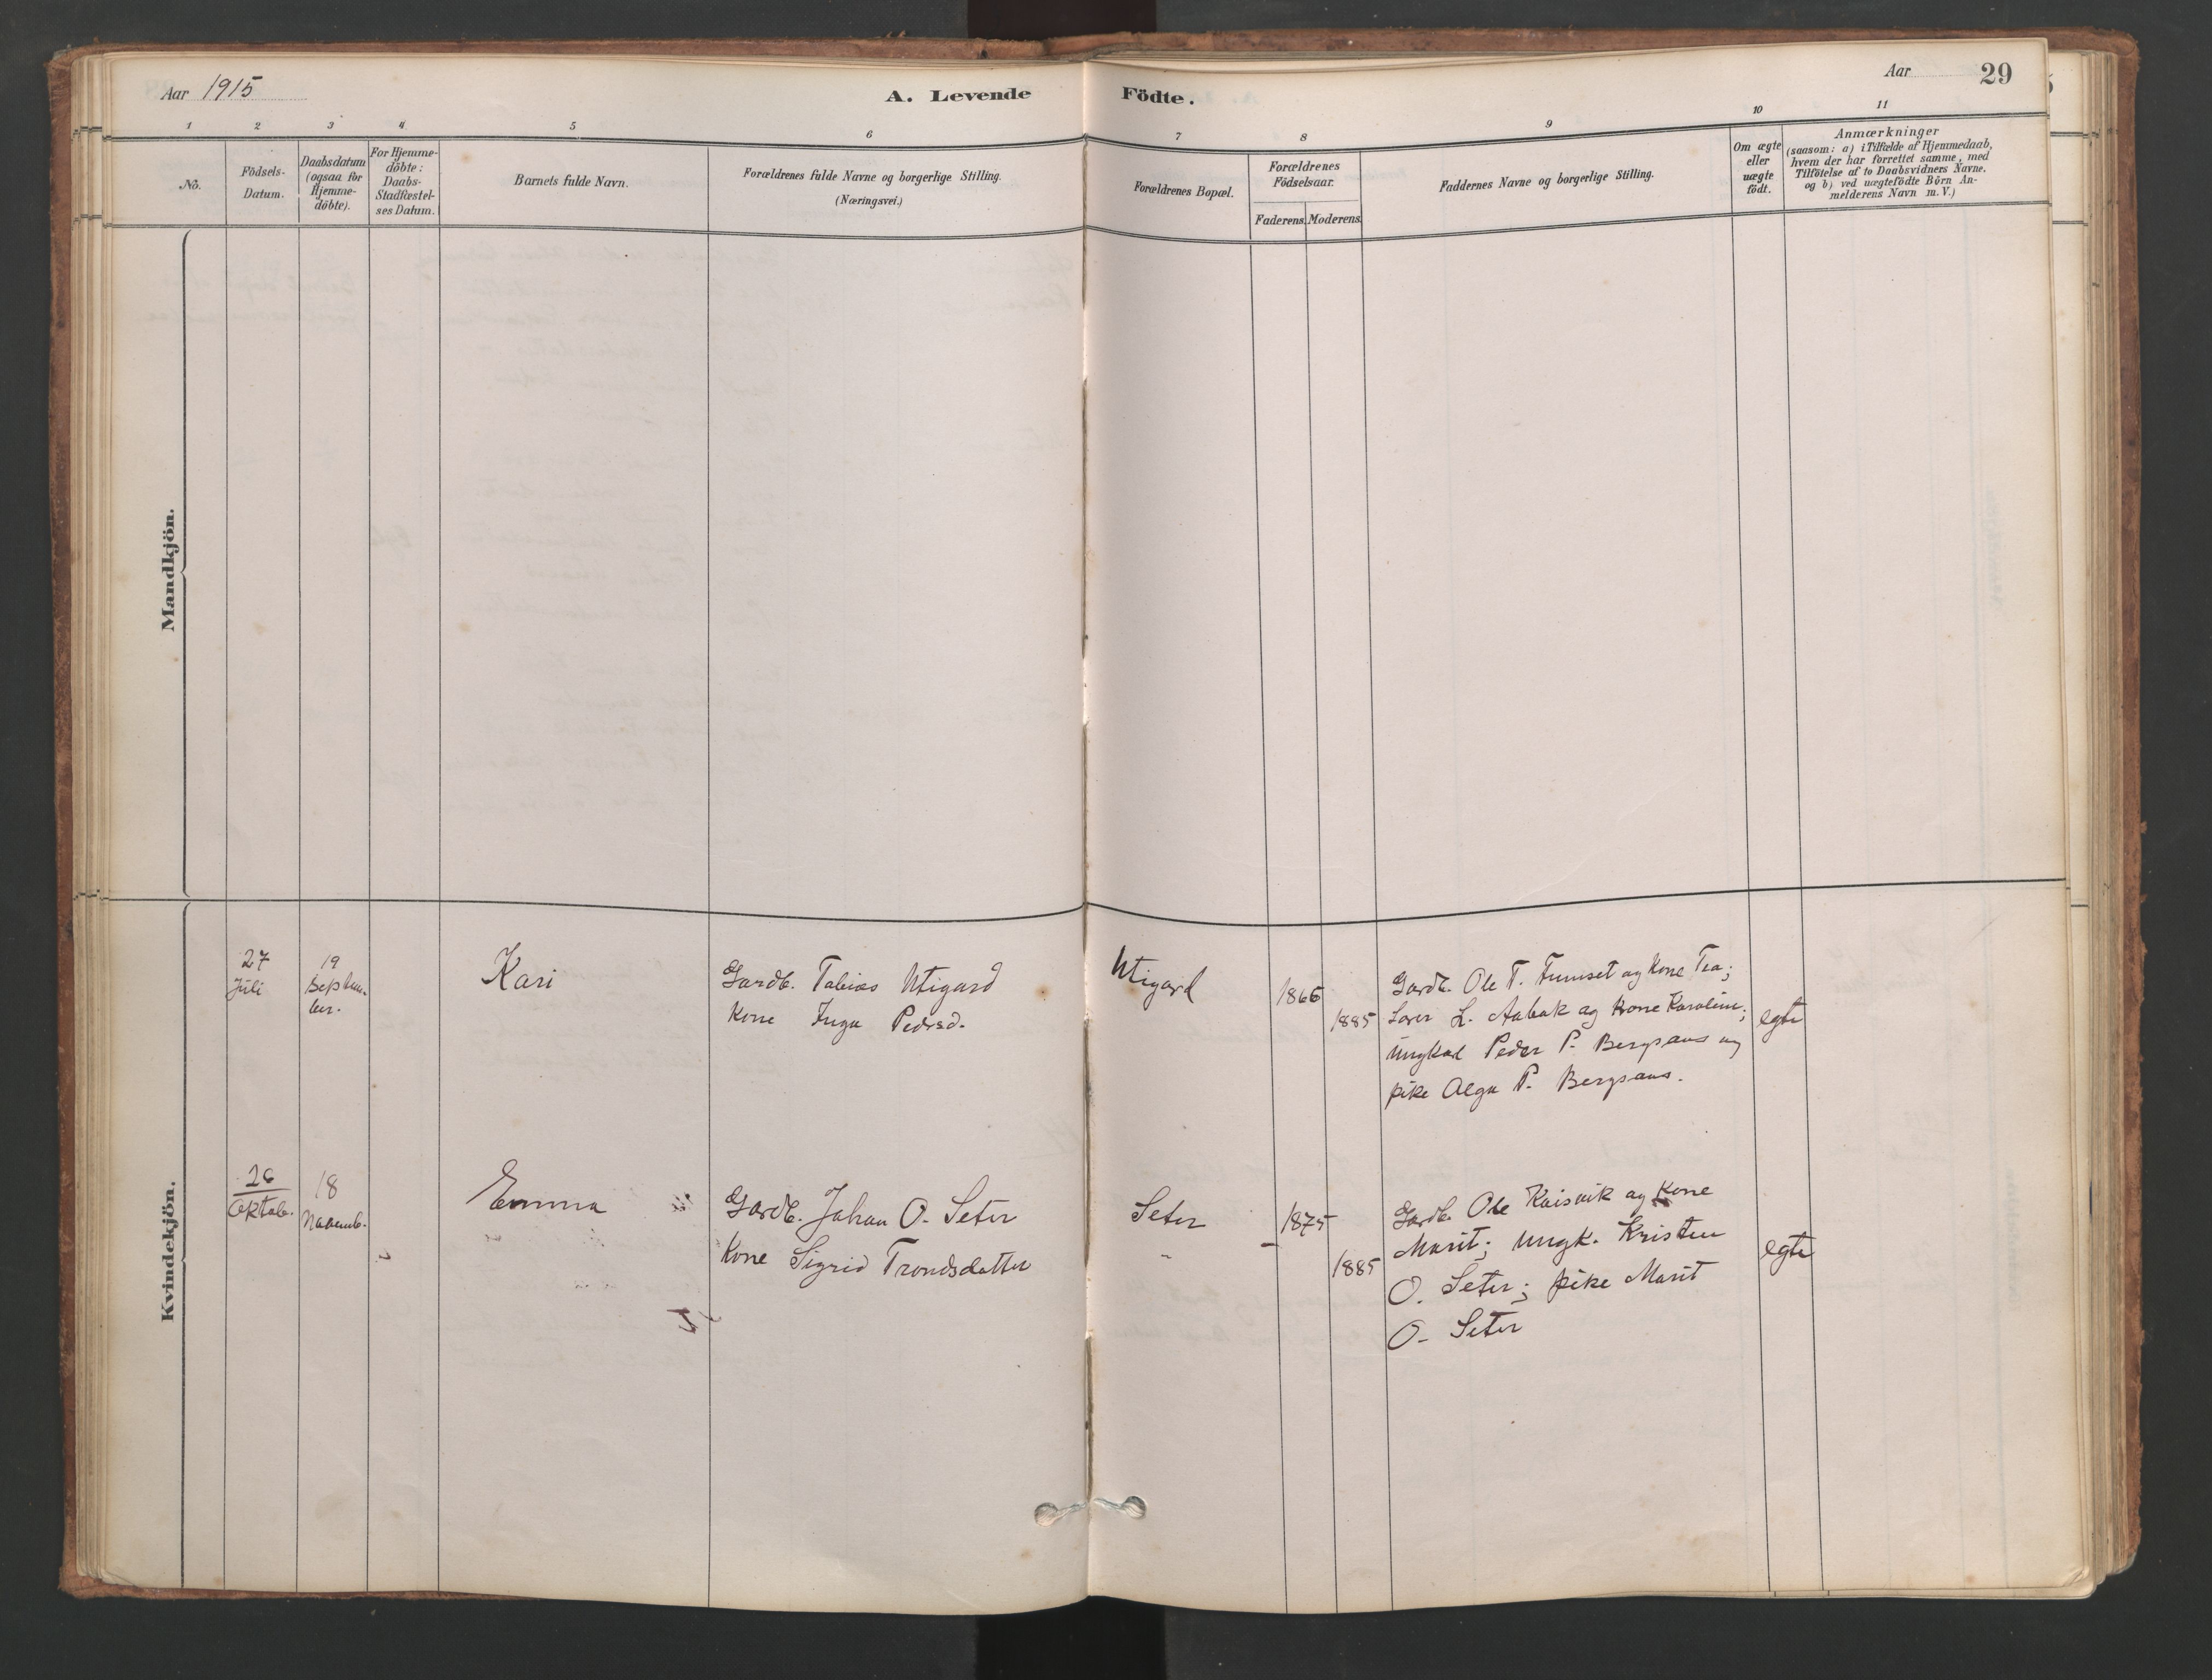 Aar 1915
A. Levende Födte.
Aar 29
1 2 3 4 5 6 7 8 9 10 11
No.
Födsels-
Datum.
Daabsdatum
(ogsaa for
Hjemme-
döbte).
For Hjemme-
döbte:
Daabs-
Stadfæstel-
ses Datum.
Barnets fulde Navn.
Forældrenes fulde Navne og borgerlige Stilling.
(Næringsvei.)
Forældrenes Bopæl.
Forældrenes
Födselsaar.
Faderens. Moderens.
Faddernes Navne og borgerlige Stilling.
Om ægte
eller
uægte
födt.
Anmærkninger
(saasom: a) i Tilfælde af Hjemmedaab,
hvem der har forrettet samme, med
Tilföielse af to Daabsvidners Navne.
og b) ved uægtefödte Börn An-
melderens Navn m. V.)
Mandkjön.
Kvindekjön.
27
Juli
19
Septem-
ber.
Kari
Gardb. Tobias Utigard
Kone Inga Pedersd.
Utigard
1866
1885
Gardb. Ole T. Fumset og kone Tea;
L. Aabak og kone Karoline;
ungkal Peder P. Bergsaas og
pike Olga P. Bergsaas.
egte
26
Oktob.
18
Novemb.
Emma
Gardb. Johan O. Seter
Kone Sigrid Trondsdatter
Seter
"
1875
1885
Gardb. Ole Kaisvik og kone
Marit; ungk. Kristen
O. Seter; pike Marit
O. Seter
egte